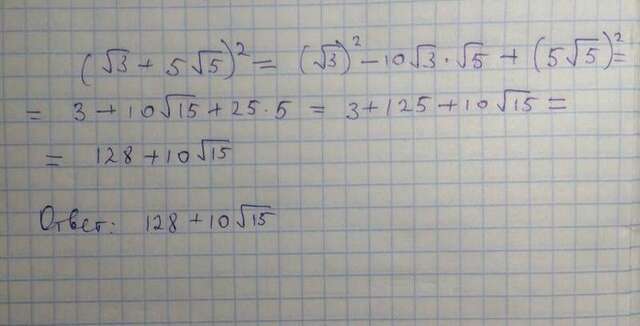 (√3 + 5√5)² = (√3)² - 10√3 · √5 + (5√5)² =
= 3 + 10√15 + 25 · 5 = 3 + 125 + 10√15 =
= 128 + 10√15
Ответ: 128 + 10√15